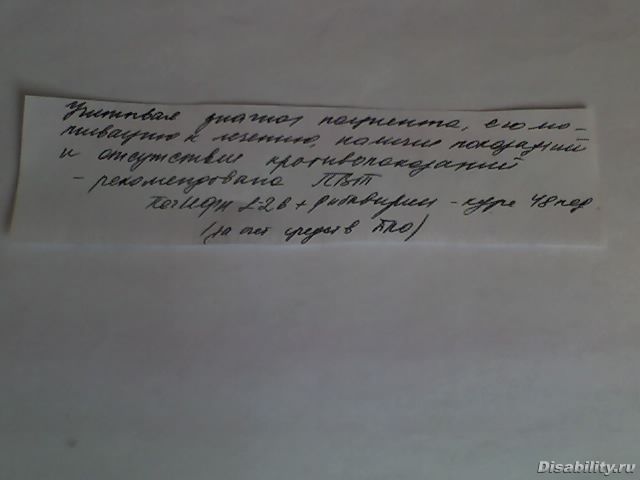 Учитывая диагноз пациента, его мо-
тивацию к лечению, наличие показаний
и отсутствие противопоказаний
- рекомендована ПВТ
ПегИФН α-2в + рибавирин - курс 48 нед
(за счет средств
Disability.ru